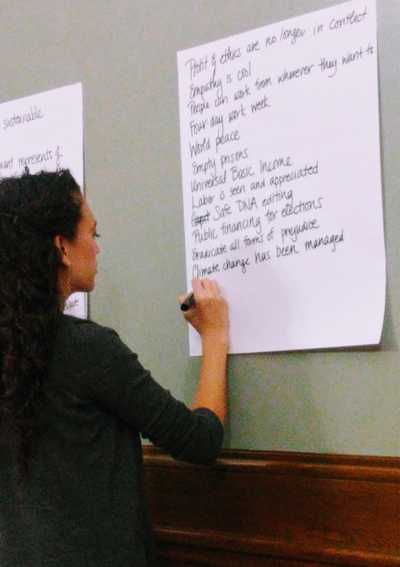 sustainable
represents
Profit & ethics are no longer in conflict
Empathy is cool
People can work from wherever they want to
Four day work week
World peace
Empty prisons
Universal Basic Income
Labor is seen and appreciated
Safe DNA editing
Public financing for elections
Eradicate all forms of prejudice
Climate change has been managed